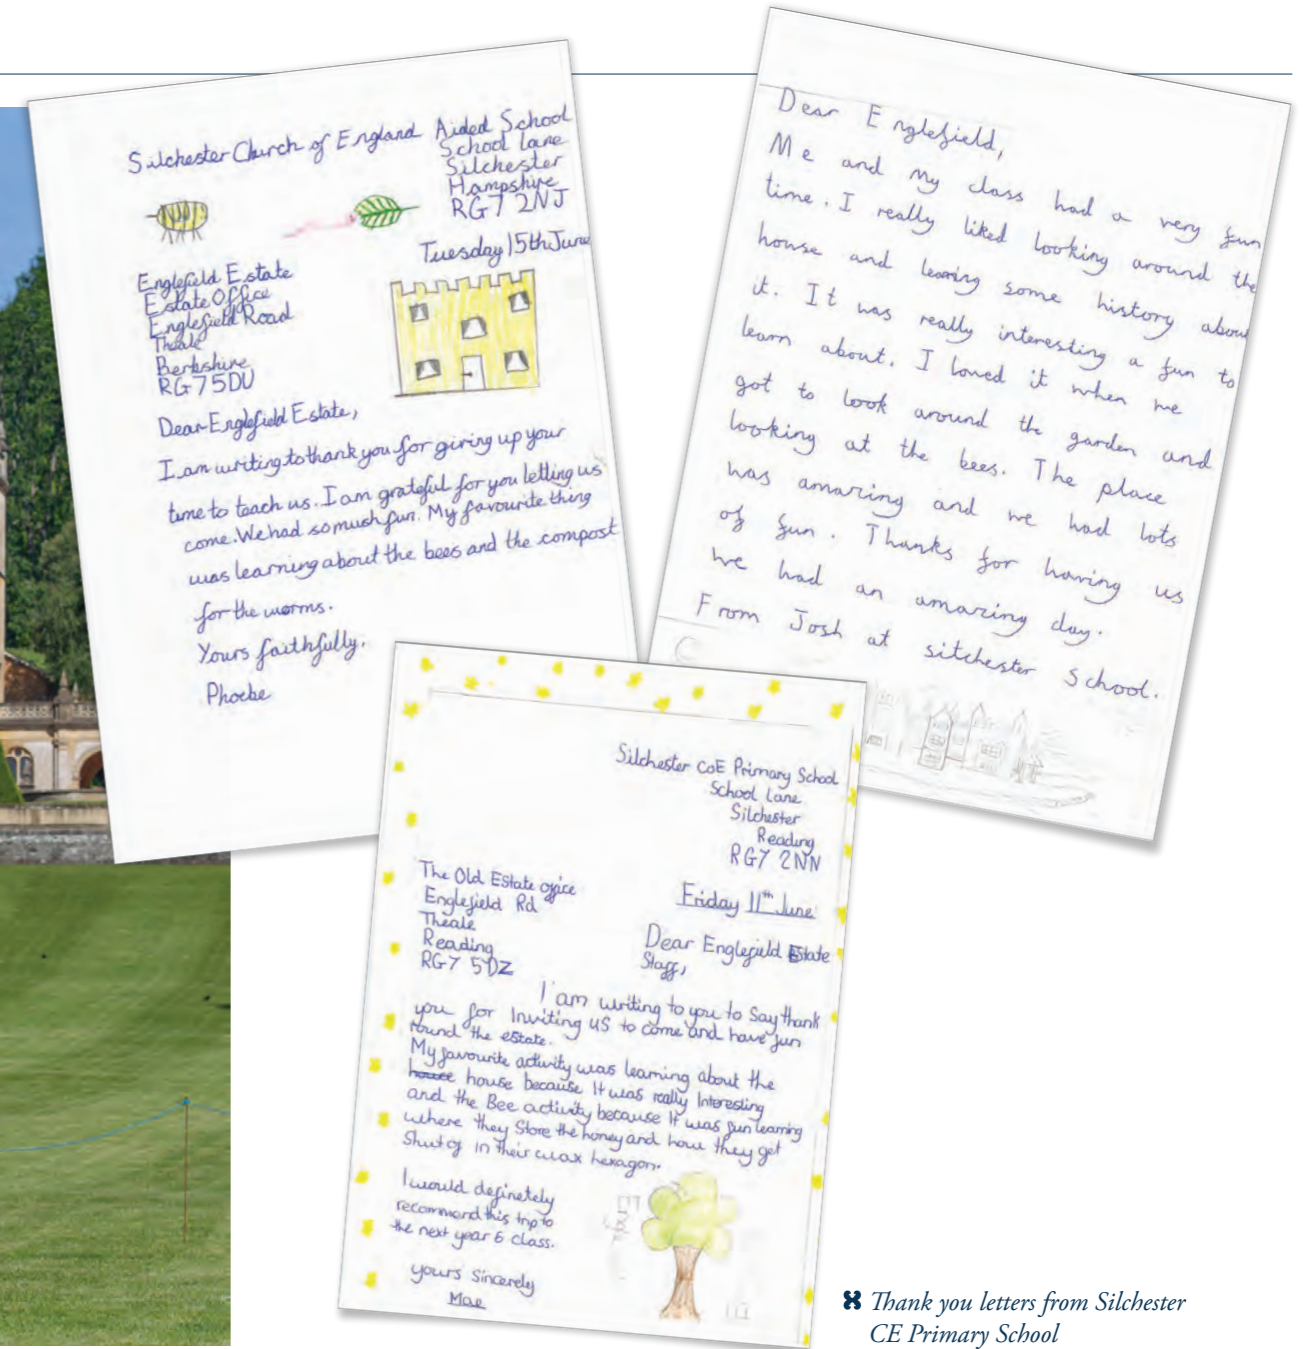 Silchester Church of England Aided School
School Lane
Silchester
Hampshire
RG7 2NJ
Tuesday 15th June
Englefield Estate
Estate Office
Englefield Road
Theale
Berkshire
RG7 5DU
Dear Englefield Estate,
I am writing to thank you for giving up your
time to teach us. I am grateful for you letting us
come. We had so much fun. My favourite thing
was learning about the bees and the compost
for the worms.
Yours faithfully,
Phoebe
Dear Englefield,
Me and my class had a very fun
time. I really liked looking around the
house and learing some history about
it. It was really interesting a fun to
learn about. I loved it when we
got to look around the garden and
looking at the bees. The place
was amazing and we had lots
of fun. Thanks for having us
we had an amazing day.
From Josh at silchester school.
Silchester CoE Primary School
School Lane
Silchester
Reading
RG7 2NN
The Old Estate office
Englefield Rd
Theale
Reading
RG7 5DZ
Friday 11th June
Dear Englefield Estate
Staff,
I am writing to you to Say thank
you for Inviting US to come and have fun
round the estate.
My favourite activity was learning about the
house house because It was really Interesting
and the Bee activity because It was fun learning
where they Store the honey and how they get
Shut of in their wax hexagon.
I would definetely
recommend this trip to
the next year 6 class.
yours Sincerely
Mae
Thank you letters from Silchester
CE Primary School